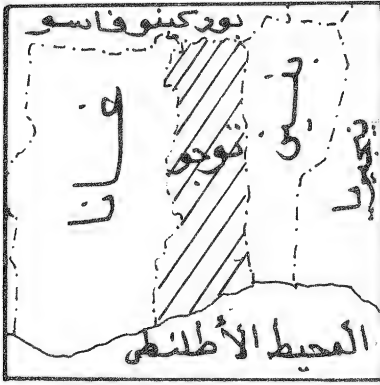 بوركينوفاسو
غانا
توجو
بنين
نيجيريا
المحيط الأطلنطى